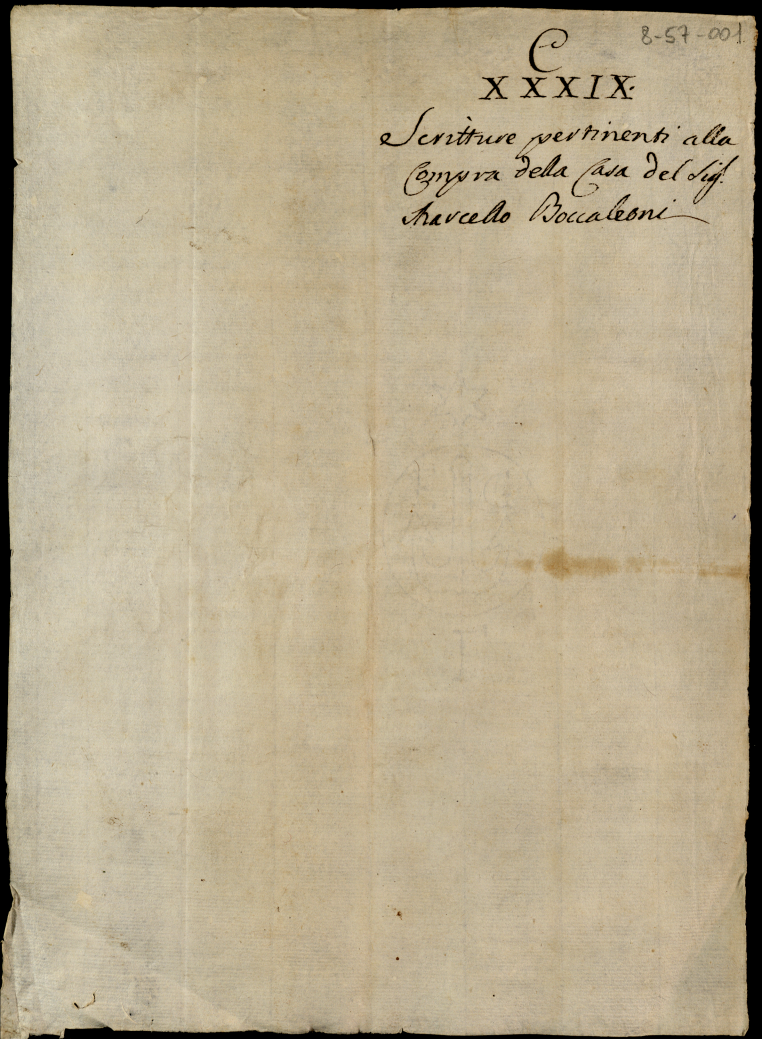 8-57-001
C
XXXIX.
Scritture pertinenti alla
Compra della Casa del Sig.
Marcello Boccaleoni